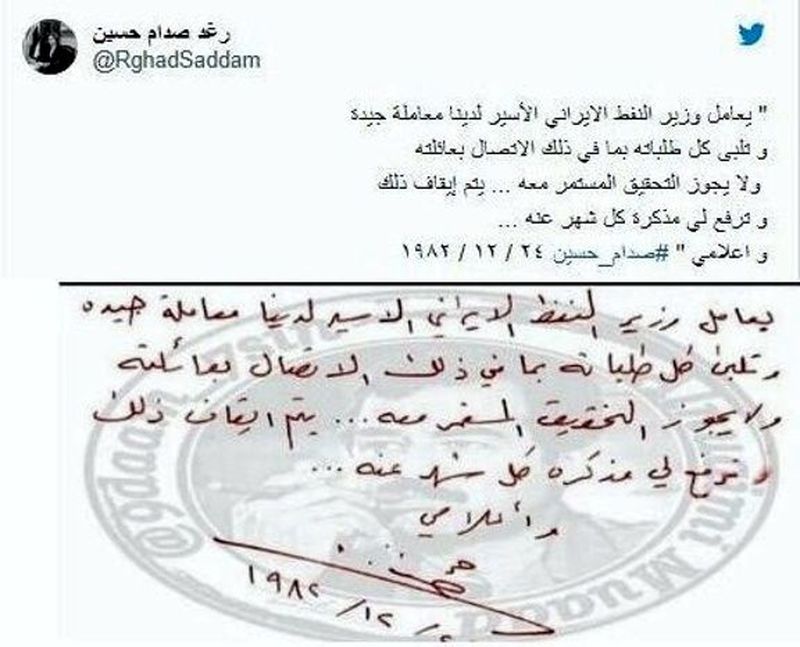 رغد صدام حسين
@RghadSaddam
" يعامل وزير النفط الايراني الأسير لدينا معاملة جيدة
و تلبى كل طلباته بما في ذلك الاتصال بعائلته
ولا يجوز التحقيق المستمر معه ... يتم إيقاف ذلك
و ترفع لي مذكرة كل شهر عنه ...
و اعلامي " #صدام_حسين ٢٤ / ١٢ / ١٩٨٢
يعامل وزير النفط الايراني الاسير لدينا معاملة جيده
و تلبى كل طلباته بما في ذلك الاتصال بعائلته
ولا يجوز التحقيق المستمر معه ... يتم ايقاف ذلك
و ترفع لي مذكره كل شهر عنه ...
و أعلامي
١٩٨٢ / ١٢ /